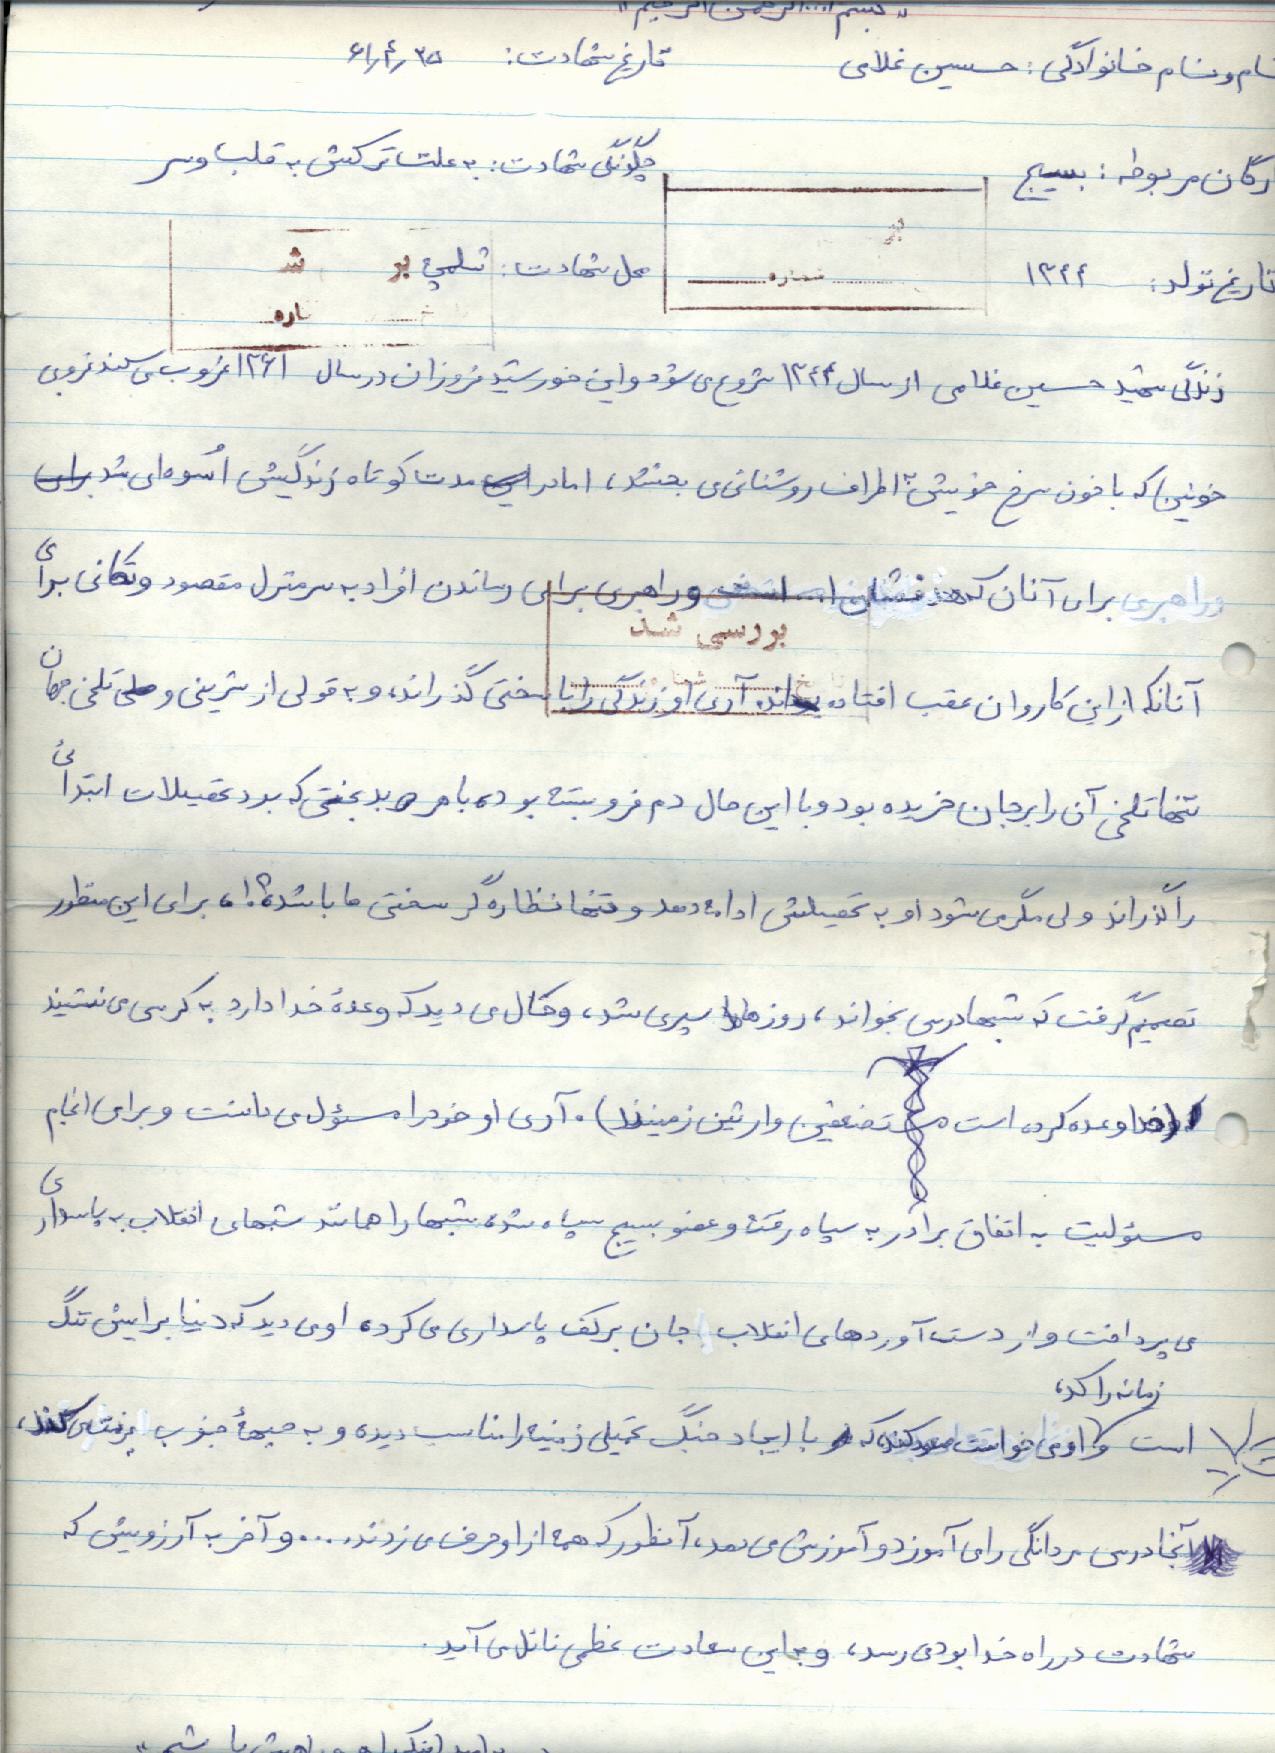 «بسم ا... الرحمن الرحیم»
نام و نام خانوادگی: حسین غلامی تاریخ شهادت: ۲۵
ارگان مربوطه: بسیج چگونگی شهادت: به علت ترکش به قلب و سر
تاریخ تولد: ۱۳۴۴ محل شهادت: شلمچه
زندگی شهید حسین غلامی از سال ۱۳۴۴ شروع می شود و این خورشید فروزان در سال ۱۳۶۱ غروب می کند غروبی
خونین که با خون سرخ خویش به اطراف روشنائی می بخشد، اما در این مدت کوتاه زندگیش اُسوه ای شد برای
و راهبری برای آنان که و راهبری برای رساندن افراد به سر منزل مقصود و تکانی برای
بررسی شد
آنانکه از این کاروان عقب افتاده اند. آری او زندگی را با سختی گذراند، و به قولی از شیرینی و تلخی جهان
تنها تلخی آن را بر جان خریده بود و با این حال دم فرو بسته بود، با هر بدبختی که بود تحصیلات ابتدائی
را گذراند ولی مگر می شود او به تحصیلش ادامه دهد و تنها نظاره گر سختی ما باشد؟!، برای این منظور
تصمیم گرفت که شبها درس بخواند، روزها سپری شد، و کمال می دید که وعدهٔ خدا دارد به کرسی می نشیند
(خدا وعده کرده است مستضعفین وارثین زمینند). آری او خود را مسئول می دانست و برای انجام
مسئولیت به اتفاق برادر به سپاه رفته و عضو بسیج سپاه شد، شبها را همانند شبهای انقلاب به پاسداری
می پرداخت و از دست آوردهای انقلاب جان بر کف پاسداری می کرد، او می دید که دنیا برایش تنگ
زمانه را کد،
است و او می خواست که با ایجاد جنگ تحمیلی زمینه را مناسب دیده و به جبههٔ جنوب
آنجا درس مردانگی را می آموزد و آموزش می دهد، آنطور که همه از او حرف می زدند.... و آخر به آرزویش که
شهادت در راه خدا بود می رسد، و به این سعادت عظمی نائل می آید.